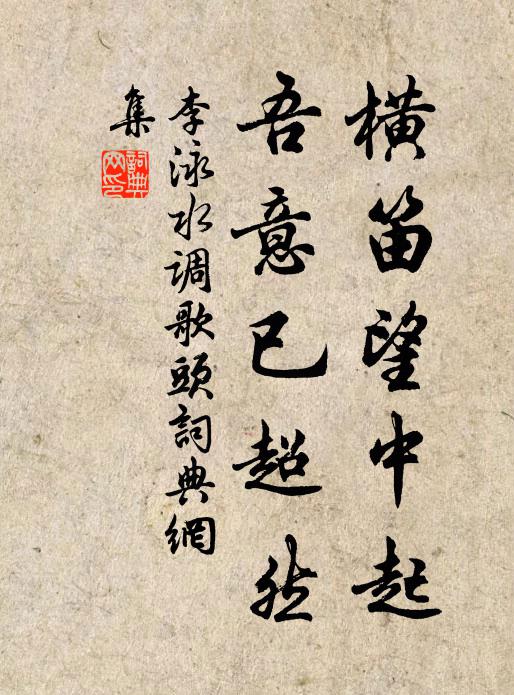 橫笛望中起
吾意已超然
李泳水調歌頭詞典網
集
詞典網印